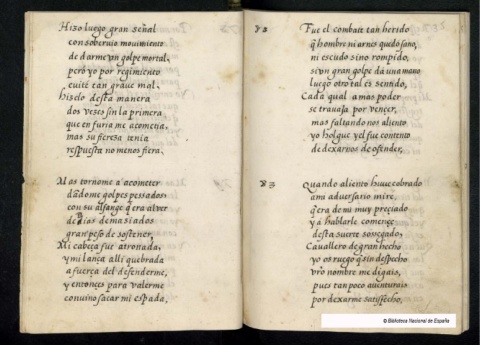 Hizo luego gran señal
con soberuio mouimiento
de darme vn golpe mortal,
pero yo por regimiento
euité tan graue mal.
Hiselo desta manera
dos vezes sin la primera
que en furia me acometia,
mas su fiereza tenia
respuesta no menos fiera.
Mas tornome a acometer
dádome golpes pesados
con su alfange q̃ era al ver
de días demasiados
gran peso de sostener,
Mi cabeça fue atronada,
y mi lança alli quebrada
a fuerça del defenderme,
y entonces para valerme
conuino sacar mi espada,
Fue el combate tan herido
q̃ hombre ni arnes quedó sano,
ni escudo sino rompido,
si vn gran golpe da vna mano
luego otro tal es sentido,
Cada qual a mas poder
se trauaja por vencer,
mas faltando nos aliento
yo holgue y el fue contento
de dexarnos de ofender,
83
Quando aliento huue cobrado
a mi aduersario mire,
q̃ era de mi muy preciado
y a hablarle començe
desta suerte sossegado,
Cauallero de gran hecho
yo os ruego q̃ sin despecho
vr̃o nombre me digais,
pues tan poco auenturais
por dexarme satisfecho,
© Biblioteca Nacional de España